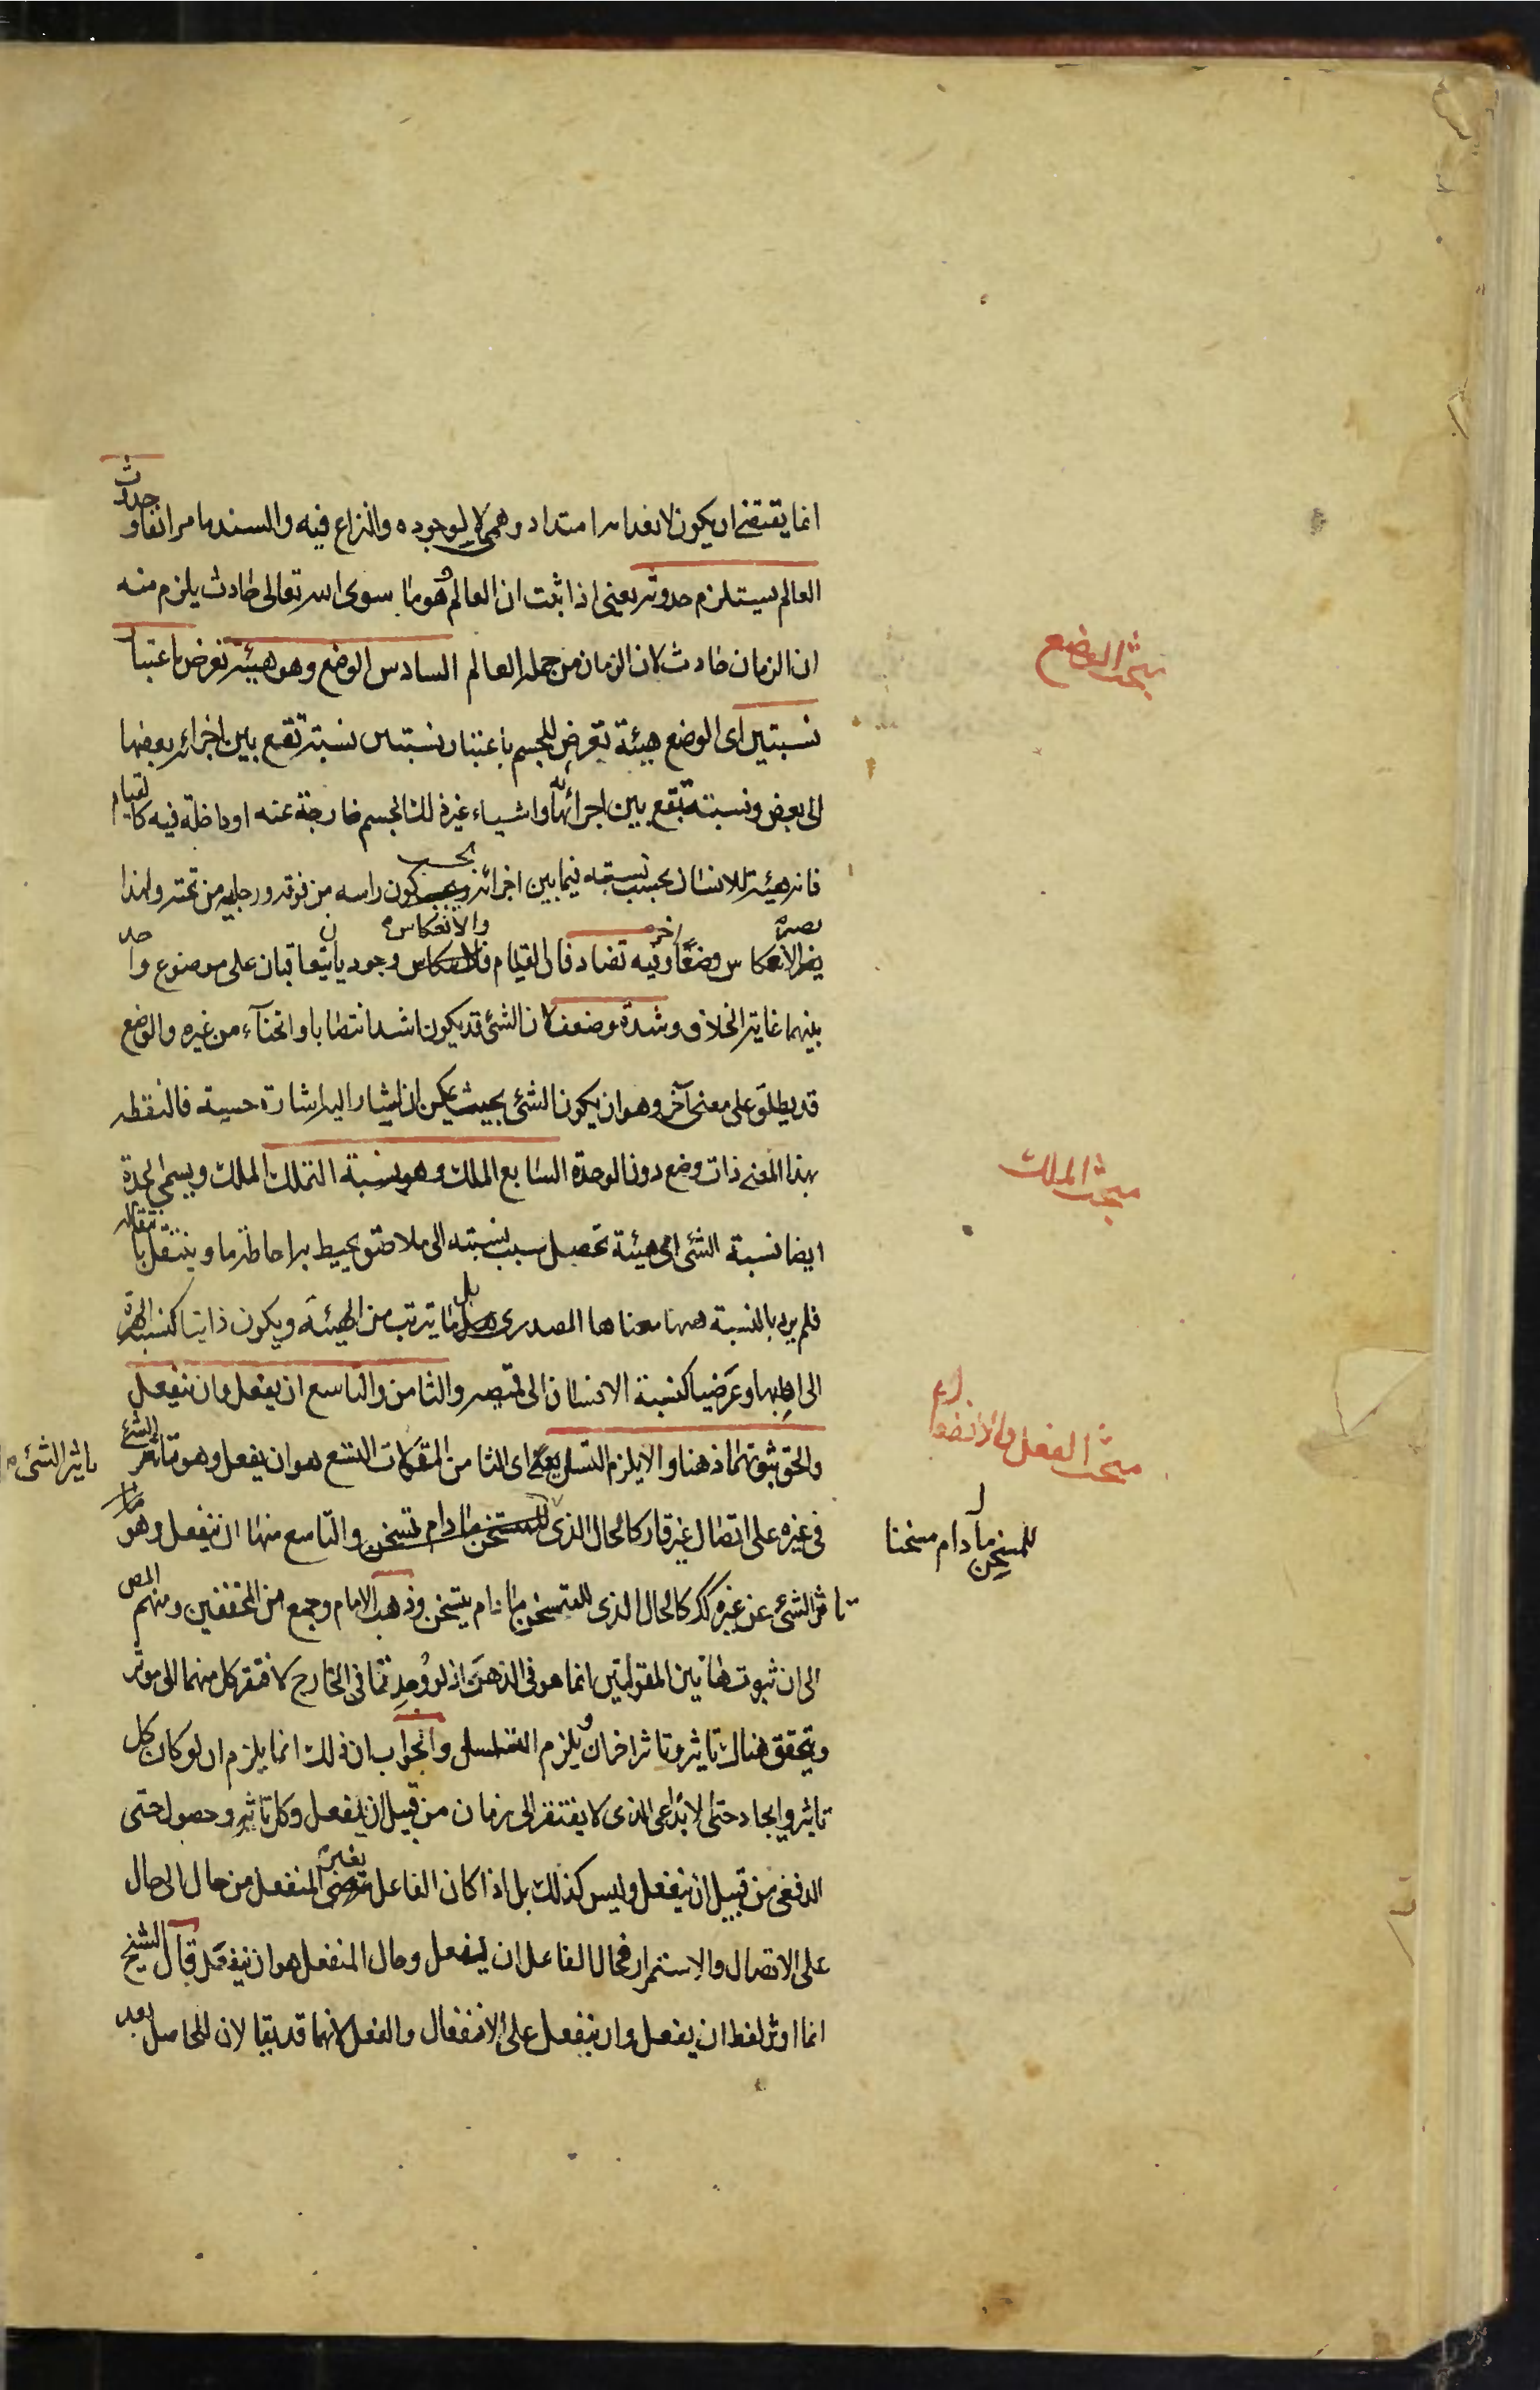 انما يقتضى ان يكون لانعدامه امتداد وهمى لا لوجوده والنزاع فيه والسند ما مر انفا وحدوث
العالم يستلزم حدوثه يعنى اذا ثبت ان العالم وهو ما سوى الله تعالى حادث يلزم منه
ان الزمان حادث لان الزمان من جملة العالم السادس الوضع وهو هيئة تعرض باعتبا
نسبتين اى الوضع هيئة تعرض للجسم باعتبار نسبتين نسبة تقع بين اجزائه بعضها
الى بعض ونسبة تقع بين اجزائه واشياء غير ذلك الجسم خارجة عنه او داخلة فيه كالقيام
فانه هيئة للانسان بحسب نسبته فيما بين اجزائه وبحسب كون راسه من فوقه ورجليه من تحته ولهذا
يصير الانعكاس وضعا اخر وفيه تضاد فان القيام والانعكاس وجوديان يتعاقبان على موضوع واحد
بينهما غاية الخلاف وشدة وضعف لان الشئ قد يكون اشد انتصابا وانحناء من غيره والوضع
قد يطلق على معنى آخر وهو ان يكون الشئ بحيث يمكن ان يشار اليه اشارة حسية فالنقطه
بهذا المعنى ذات وضع دون الوحدة السابع الملك وهو نسبة التملك الملك ويسمى الجدة
ايضا نسبة الشئ اى هيئة تحصل بسبب نسبته الى ملاصق يحيط به احاطة ما وينتقل بانتقاله
فلم يرد بالنسبة ههنا معناها المصدرى بل ما يترتب من الهيئة ويكون ذاتيا كنسبة الهرة
الى اهابها وعرضيا كنسبة الانسان الى قميصه والثامن والتاسع ان يفعل وان ينفعل
والحق ثبوتهما ذهنا والا يلزم التسلسل يعنى اى الثامن المقولات التسع هو ان يفعل وهو تاثير الشئ
تاثير الشئ
فى غيره على اتصال غير قار كالحال الذى للمسخن ما دام يسخن والتاسع منها ان ينفعل وهو
تاثر الشئ عن غيره كك كالحال الذى للمتسخن ما دام يتسخن وذهب الامام وجمع من المحققين ومنهم المص
الى ان ثبوت هاتين المقولتين انما هو فى الذهن اذ لو وجدتا فى الخارج لافتقر كل منهما الى موثر
ويتحقق هناك تاثير وتاثر اخران ويلزم التسلسل والجواب ان ذلك انما يلزم ان لو كان كل
تاثير وايجاد حتى الابداعى الذى لا يفتقر الى زمان من قبيل ان يفعل وكل تاثر وحصول حتى
الدفعى من قبيل ان ينفعل وليس كذلك بل اذا كان الفاعل يغير المنفعل من حال الى حال
على الاتصال والاستمرار فحال الفاعل ان يفعل وحال المنفعل هو ان ينفعل قال الشيخ
انما اوثر لفظ ان يفعل وان ينفعل على الانفعال والفعل لانهما قد يقالان للحاصل بعد
مبحث الوضع
مبحث الملك
مبحث الفعل والانفعال
للمسخن ما دام مسخنا